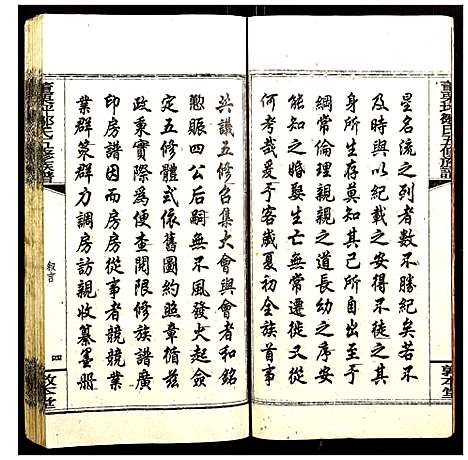 星名流之列者數不勝紀矣若不
及是時以紀載之安得不徒之其
身所生存莫知其己所自出至于
綱常倫理親親之道長幼之序安
能不亦婚娶生亡無處無之安從
何考哉爰于客歲夏初全族首事
共議五修召集大會與會者和銘
憨賑四公后嗣無不風發火起僉
定五修體式依舊圖約照章循茲
政秉實際爲便查閱限修族譜廣
印房譜因而房房從事者競競業
業群策群力調房訪親收纂墨冊
叙言
四
敦本堂